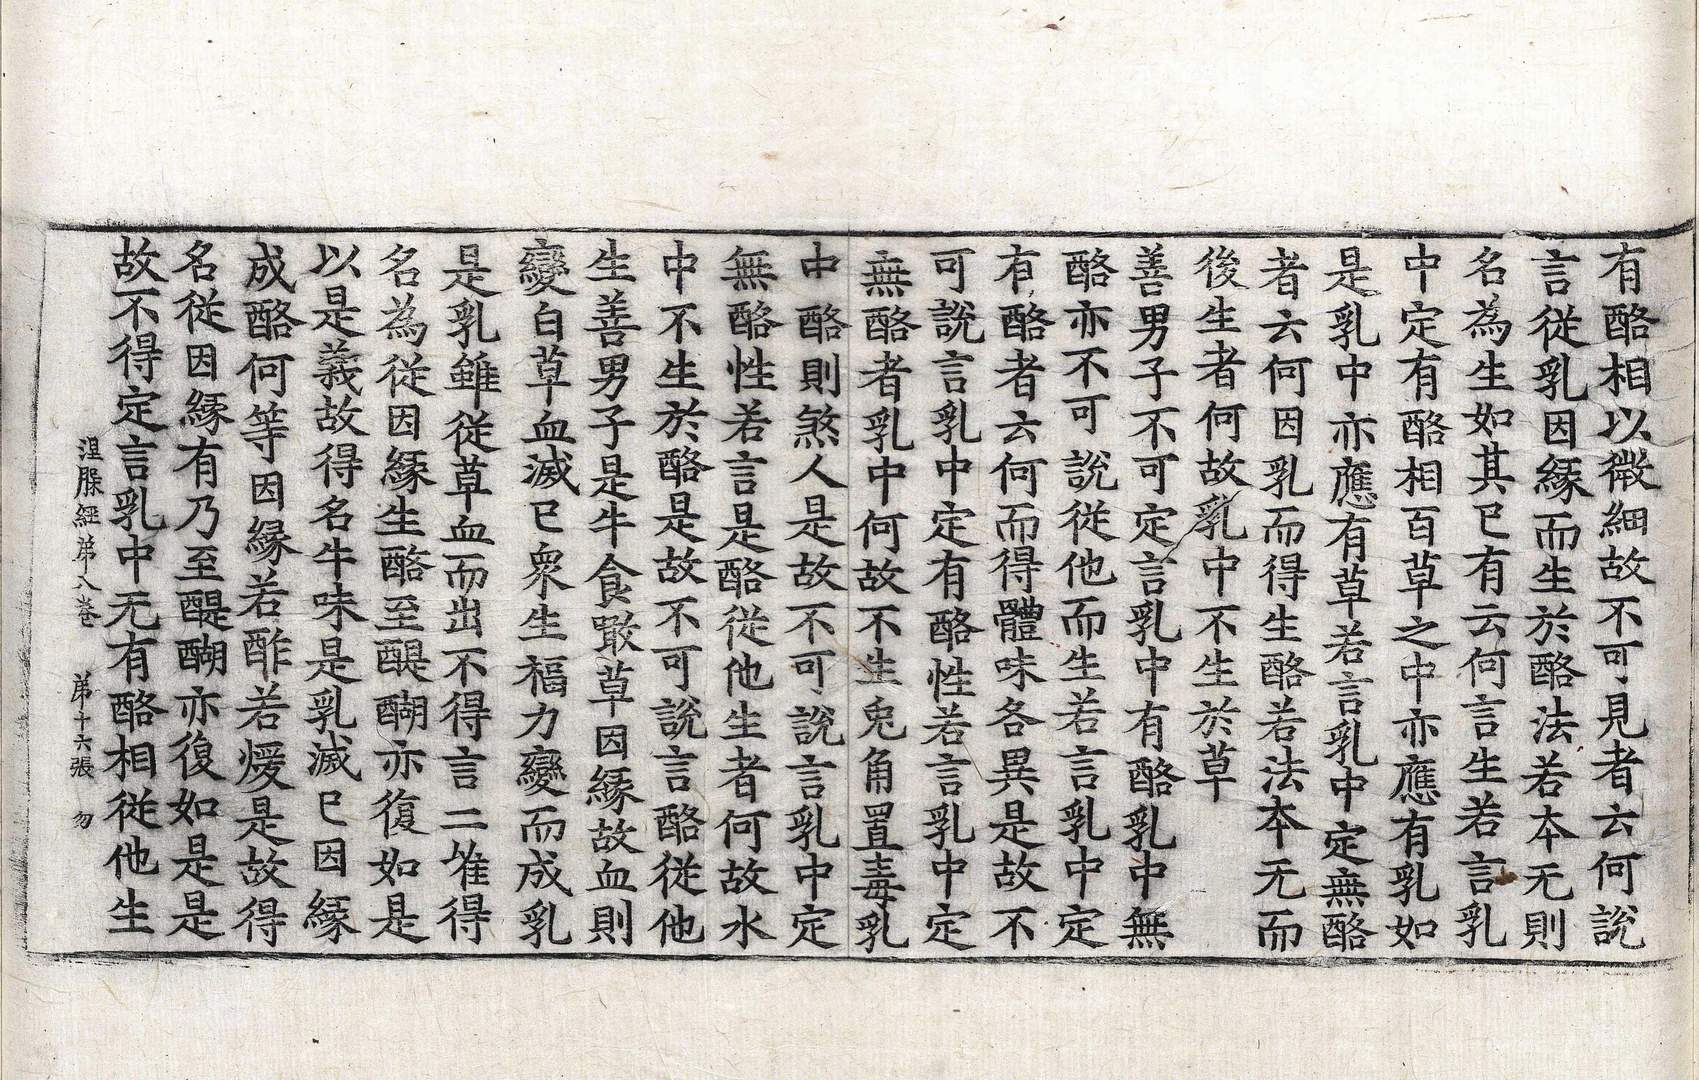 有酪相以微細故不可見者云何說
言從乳因緣而生於酪法若本无則
名為生如其已有云何言生若言乳
中定有酪相百草之中亦應有乳如
是乳中亦應有草若言乳中定無酪
者云何因乳而得生酪若法本无而
後生者何故乳中不生於草
善男子不可定言乳中有酪乳中無
酪亦不可說從他而生若言乳中定
有酪者云何而得體味各異是故不
可說言乳中定有酪性若言乳中定
無酪者乳中何故不生兎角置毒乳
中酪則煞人是故不可說言乳中定
無酪性若言是酪從他生者何故水
中不生於酪是故不可說言酪從他
生善男子是牛食噉草因緣故血則
變白草血滅已衆生福力變而成乳
是乳雖從草血而出不得言二唯得
名為從因緣生酪至醍醐亦復如是
以是義故得名牛味是乳滅已因緣
成酪何等因緣若酢若煖是故得
名從因緣有乃至醍醐亦復如是是
故不得定言乳中无有酪相從他生
涅脲經弟八卷 弟十六張 勿